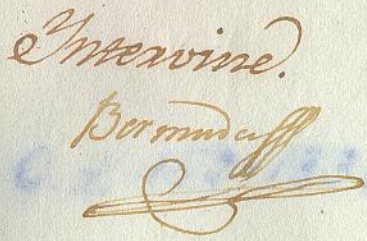 Yntervine.
Bermudez